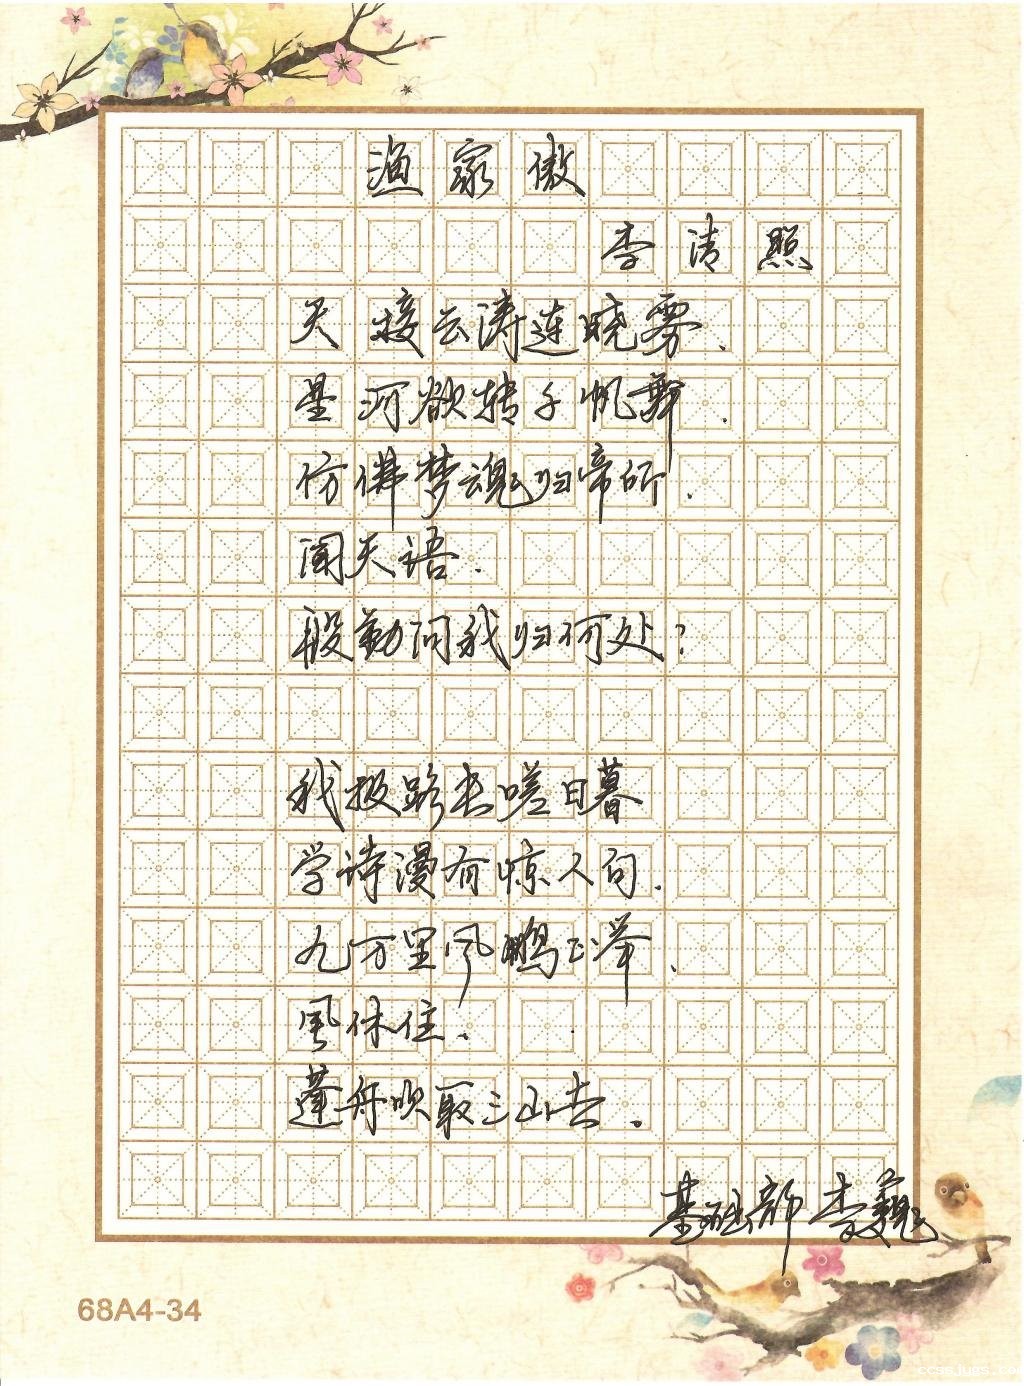 渔家傲
李清照
天接云涛连晓雾.
星河欲转千帆舞.
仿佛梦魂归帝所.
闻天语.
殷勤问我归何处?
我报路长嗟日暮
学诗漫有惊人句.
九万里风鹏正举.
风休住.
蓬舟吹取三山去.
基础部 李巍
68A4-34